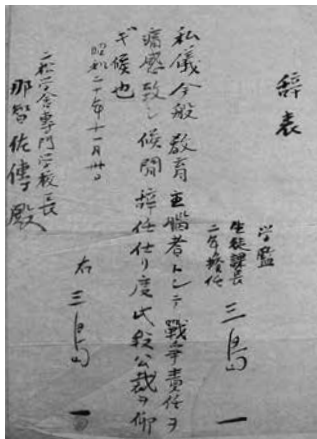 辞表
学監
生徒課長
二年擔任
三島一
私儀今般教育主腦者トシテ戰争責任ヲ
痛感致シ候間辞任仕リ度此段公裁ヲ仰
ギ候也
昭和二十年十一月卅日
右 三島一
二松学舎専門学校長
那智佐傳殿